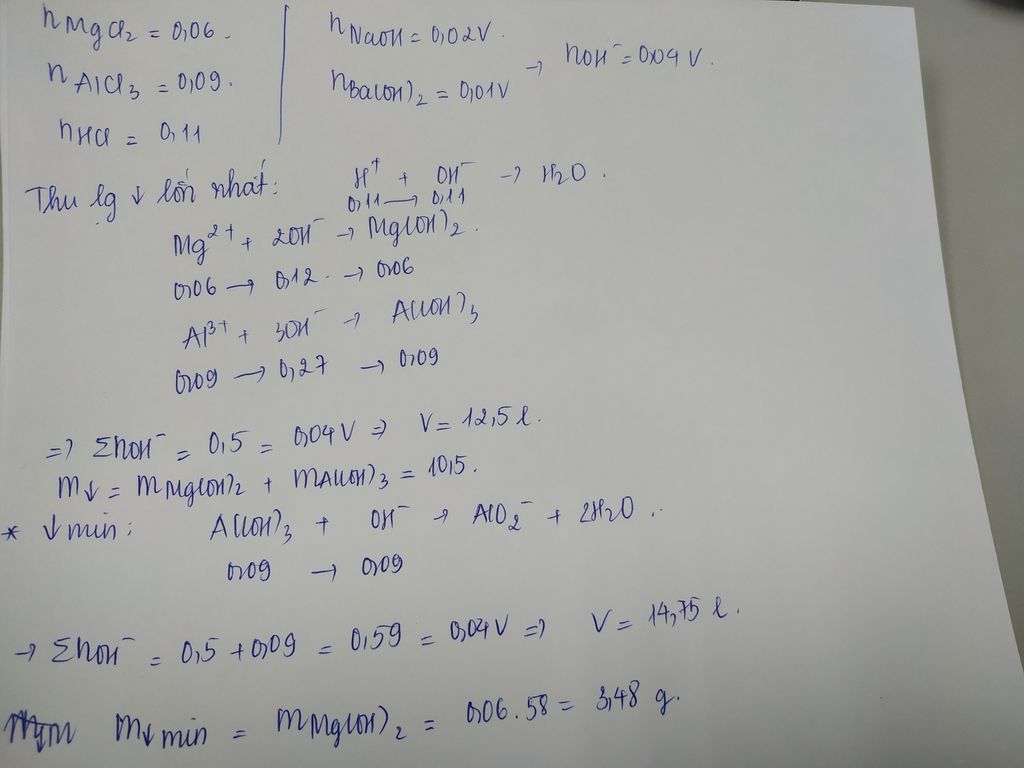 nMgCl2 = 0,06.
nAlCl3 = 0,09.
nHCl = 0,11
nNaOH = 0,02V.
nBa(OH)2 = 0,01V
→ nOH⁻ = 0,04 V.
Thu lg ↓ lớn nhất: H⁺ + OH⁻ → H2O.
0,11 → 0,11
Mg²⁺ + 2OH⁻ → Mg(OH)2.
0,06 → 0,12 → 0,06
Al³⁺ + 3OH⁻ → Al(OH)3
0,09 → 0,27 → 0,09
=> ΣnOH⁻ = 0,5 = 0,04V => V = 12,5 l.
m↓ = mMg(OH)2 + mAl(OH)3 = 10,5.
* ↓min: Al(OH)3 + OH⁻ → AlO2⁻ + 2H2O.
0,09 → 0,09
→ ΣnOH⁻ = 0,5 + 0,09 = 0,59 = 0,04V => V = 14,75 l.
m↓min = mMg(OH)2 = 0,06.58 = 3,48 g.